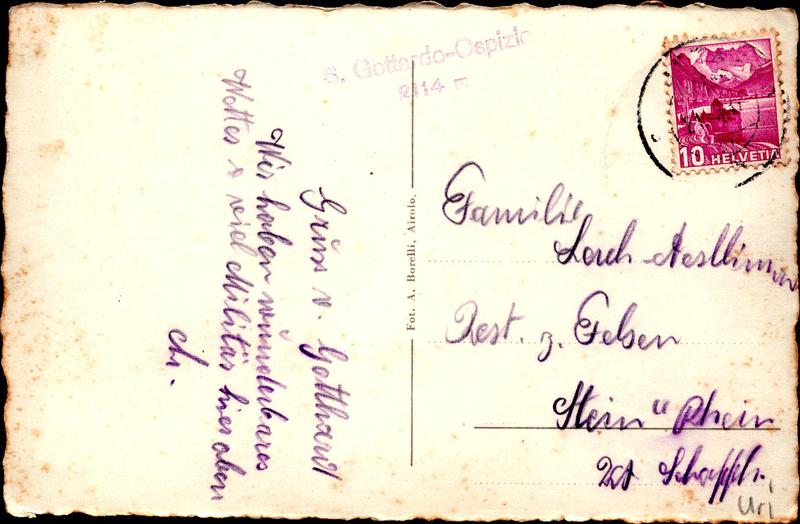 S. Gottardo-Ospizio
2114 m
10 HELVETIA
Gruss v. Gotthard
Wir haben wunderbares
Wetter & viel Militär hier oben
Fot. A. Borelli, Airolo.
Familie
Rest. z. Felsen
Stein a Rhein
Kt Schaffh.
Uri